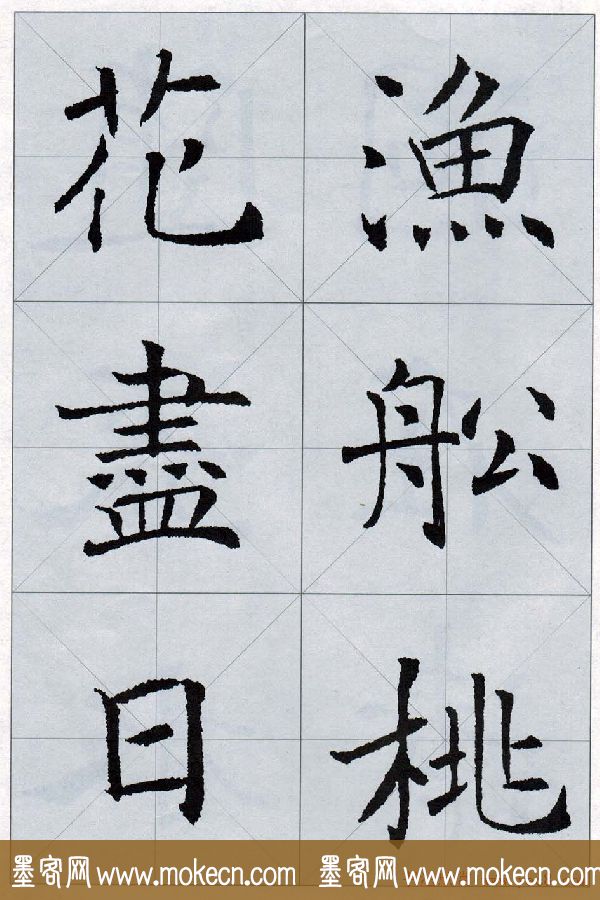 漁舩桃
花盡日
墨客网 www.mokecn.com 墨客网 www.mokecn.com